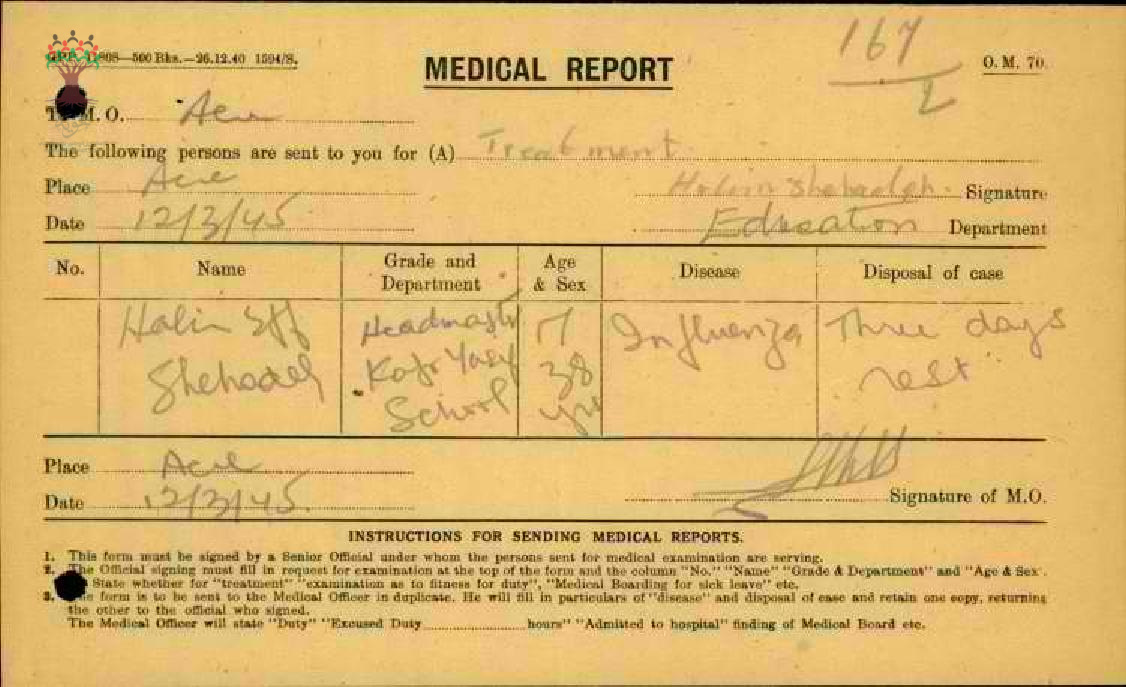 G.P.P. 11808—500 Bks.—26.12.40 1594/S.
167
2
O. M. 70.
MEDICAL REPORT
To M. O. Acre
The following persons are sent to you for (A) Treatment
Place Acre
Halim Shehadeh. Signature
Date 12/3/45
Education Department
No. Name Grade and Department Age & Sex Disease Disposal of case
Halim Eff Headmaster M Influenza Three days
Shehadeh Kafr Yasif 38 rest
School yrs
Place Acre
Date 12/3/45.
Signature of M.O.
INSTRUCTIONS FOR SENDING MEDICAL REPORTS.
1. This form must be signed by a Senior Official under whom the persons sent for medical examination are serving.
2. The Official signing must fill in request for examination at the top of the form and the column "No." "Name" "Grade & Department" and "Age & Sex".
State whether for "treatment" "examination as to fitness for duty", "Medical Boarding for sick leave" etc.
3. The form is to be sent to the Medical Officer in duplicate. He will fill in particulars of "disease" and disposal of case and retain one copy, returning
the other to the official who signed.
The Medical Officer will state "Duty" "Excused Duty hours" "Admitted to hospital" finding of Medical Board etc.